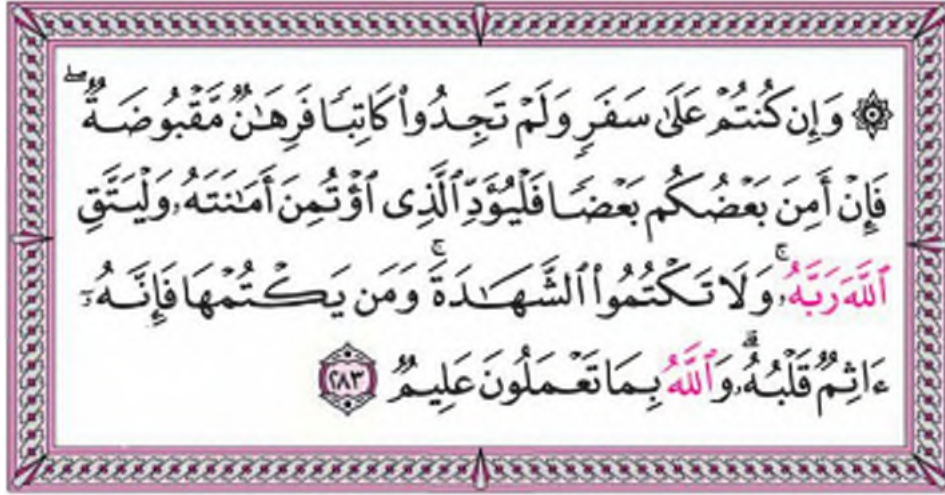 ۞ وَإِن كُنتُمْ عَلَىٰ سَفَرٍ وَلَمْ تَجِدُوا۟ كَاتِبًا فَرِهَـٰنٌ مَّقْبُوضَةٌ ۖ
فَإِنْ أَمِنَ بَعْضُكُم بَعْضًا فَلْيُؤَدِّ ٱلَّذِى ٱؤْتُمِنَ أَمَـٰنَتَهُۥ وَلْيَتَّقِ
ٱللَّهَ رَبَّهُۥ ۗ وَلَا تَكْتُمُوا۟ ٱلشَّهَـٰدَةَ ۚ وَمَن يَكْتُمْهَا فَإِنَّهُۥٓ
ءَاثِمٌ قَلْبُهُۥ ۗ وَٱللَّهُ بِمَا تَعْمَلُونَ عَلِيمٌ ٢٨٣